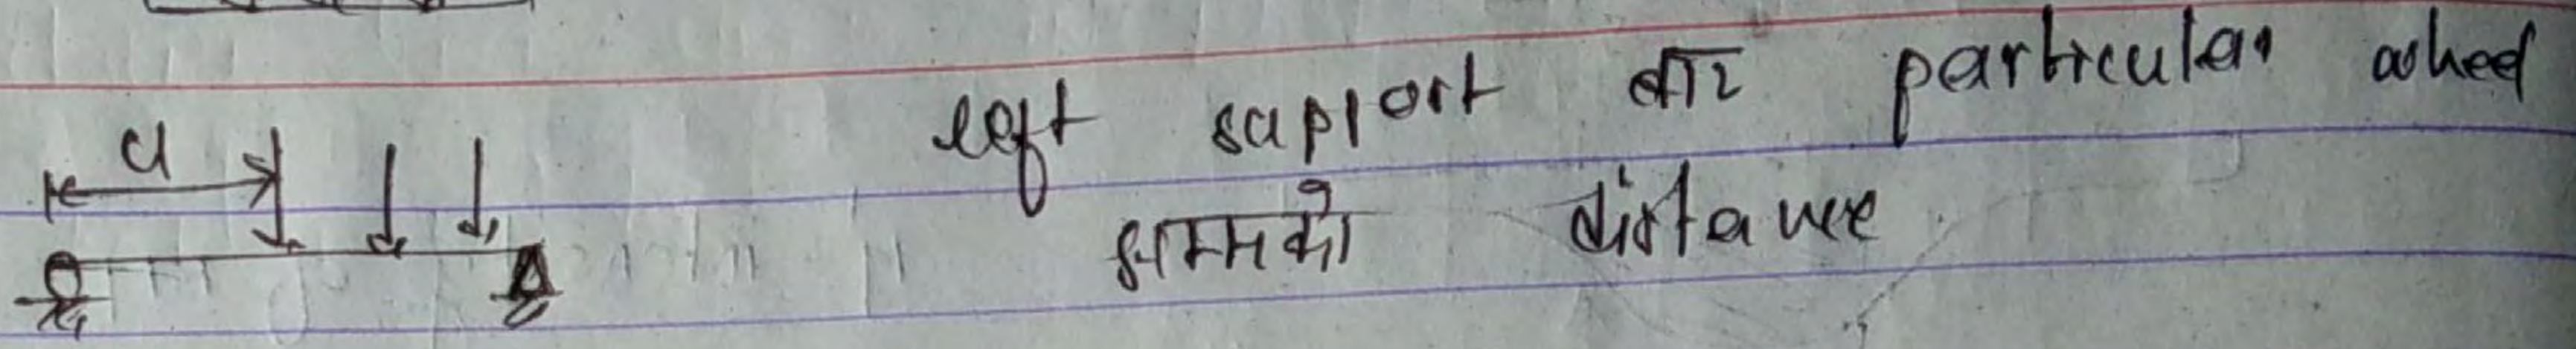 left support बाट particular wheel
सम्मको distance
a